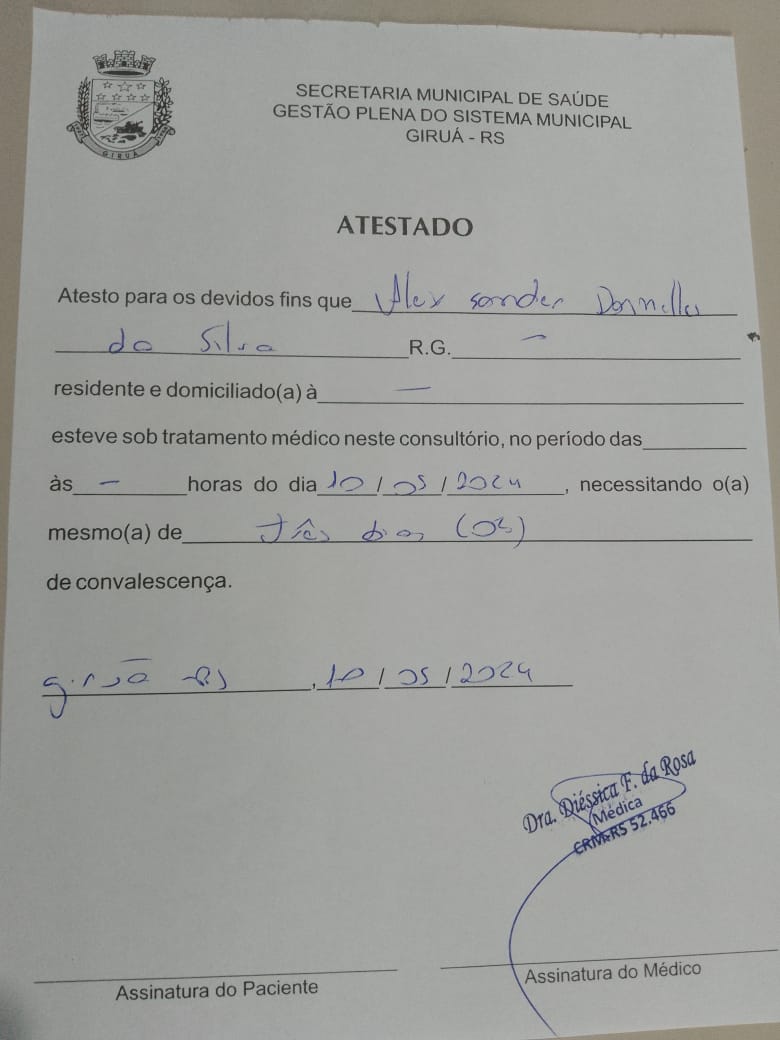 GIRUÁ
SECRETARIA MUNICIPAL DE SAÚDE
GESTÃO PLENA DO SISTEMA MUNICIPAL
GIRUÁ - RS
ATESTADO
Atesto para os devidos fins que Alex sander
da Silva R.G. —
residente e domiciliado(a) à —
esteve sob tratamento médico neste consultório, no período das
às — horas do dia 10/05/2024, necessitando o(a)
mesmo(a) de três dias (03)
de convalescença.
Giruá - RS, 10/05/2024
Dra. Diéssica F. da Rosa
Médica
CRM-RS 52.466
Assinatura do Paciente
Assinatura do Médico